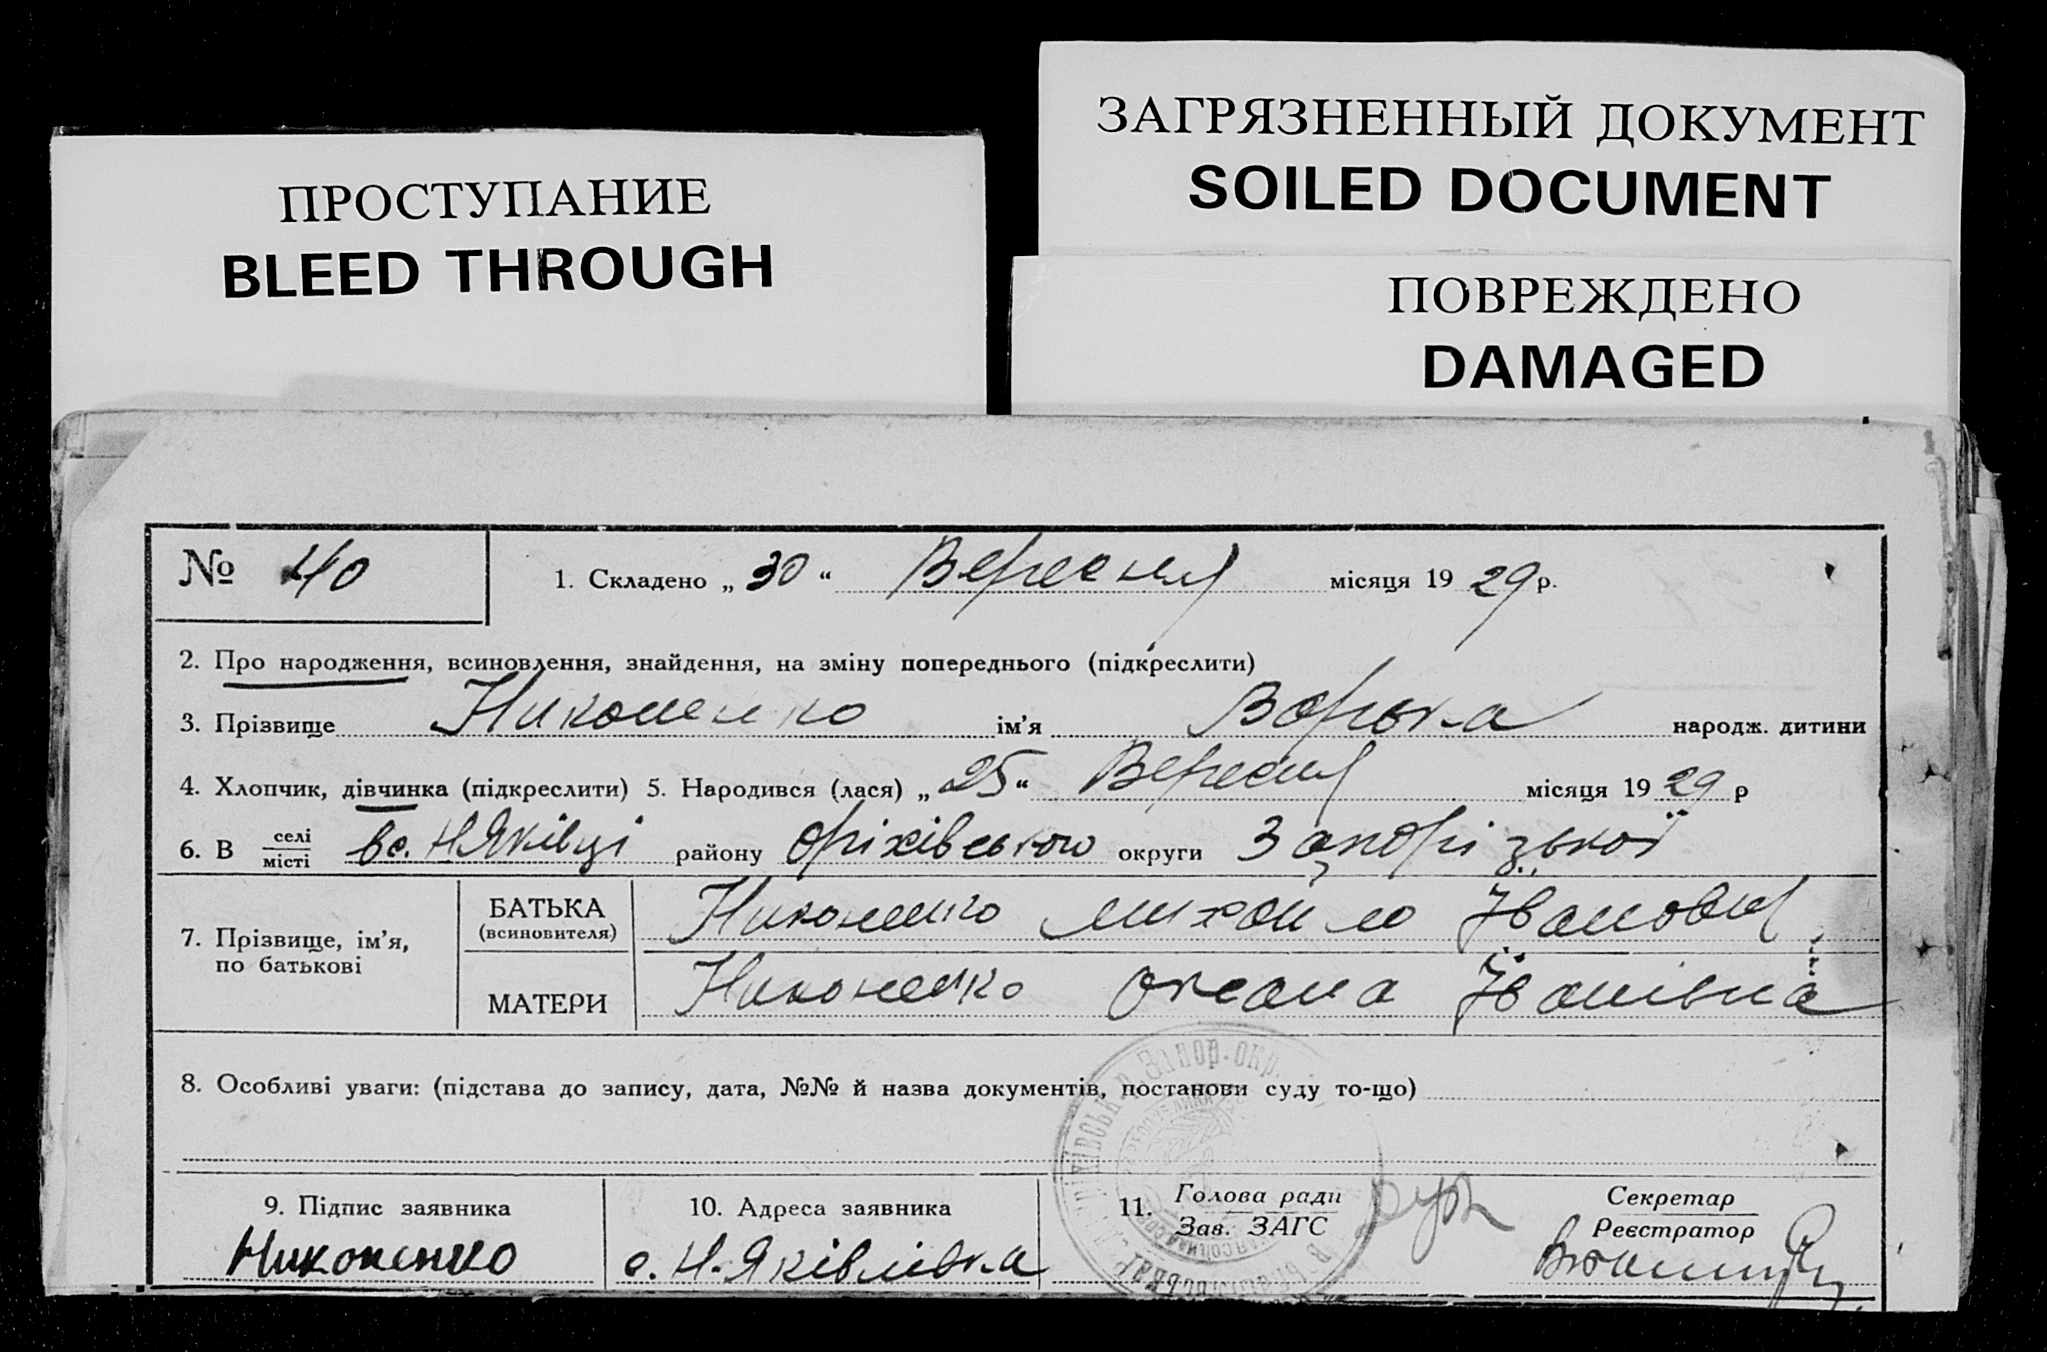 ЗАГРЯЗНЕННЫЙ ДОКУМЕНТ
SOILED DOCUMENT
ПРОСТУПАНИЕ
BLEED THROUGH
ПОВРЕЖДЕНО
DAMAGED
№ 40
1. Складено „ 30 “ Вересня місяця 19 29 р.
2. Про народження, всиновлення, знайдення, на зміну попереднього (підкреслити)
3. Прізвище Никоненко ім’я Варька народж. дитини
4. Хлопчик, дівчинка (підкреслити) 5. Народився (лася) „ 25 “ Вересня місяця 19 29 р
6. В селі місті вс. Н Яківці району Оріхівського округи Запорізької
7. Прізвище, ім’я, по батькові
БАТЬКА (всиновителя) Никоненко Михайло Іванович
МАТЕРИ Никоненко Оксана Іванівна
8. Особливі уваги: (підстава до запису, дата, №№ й назва документів, постанови суду то-що)
9. Підпис заявника
Никоненко
10. Адреса заявника
с. Н-Яківлівка
11. Голова ради
Зав. ЗАГС
Секретар
Реєстратор
Запор. окр.